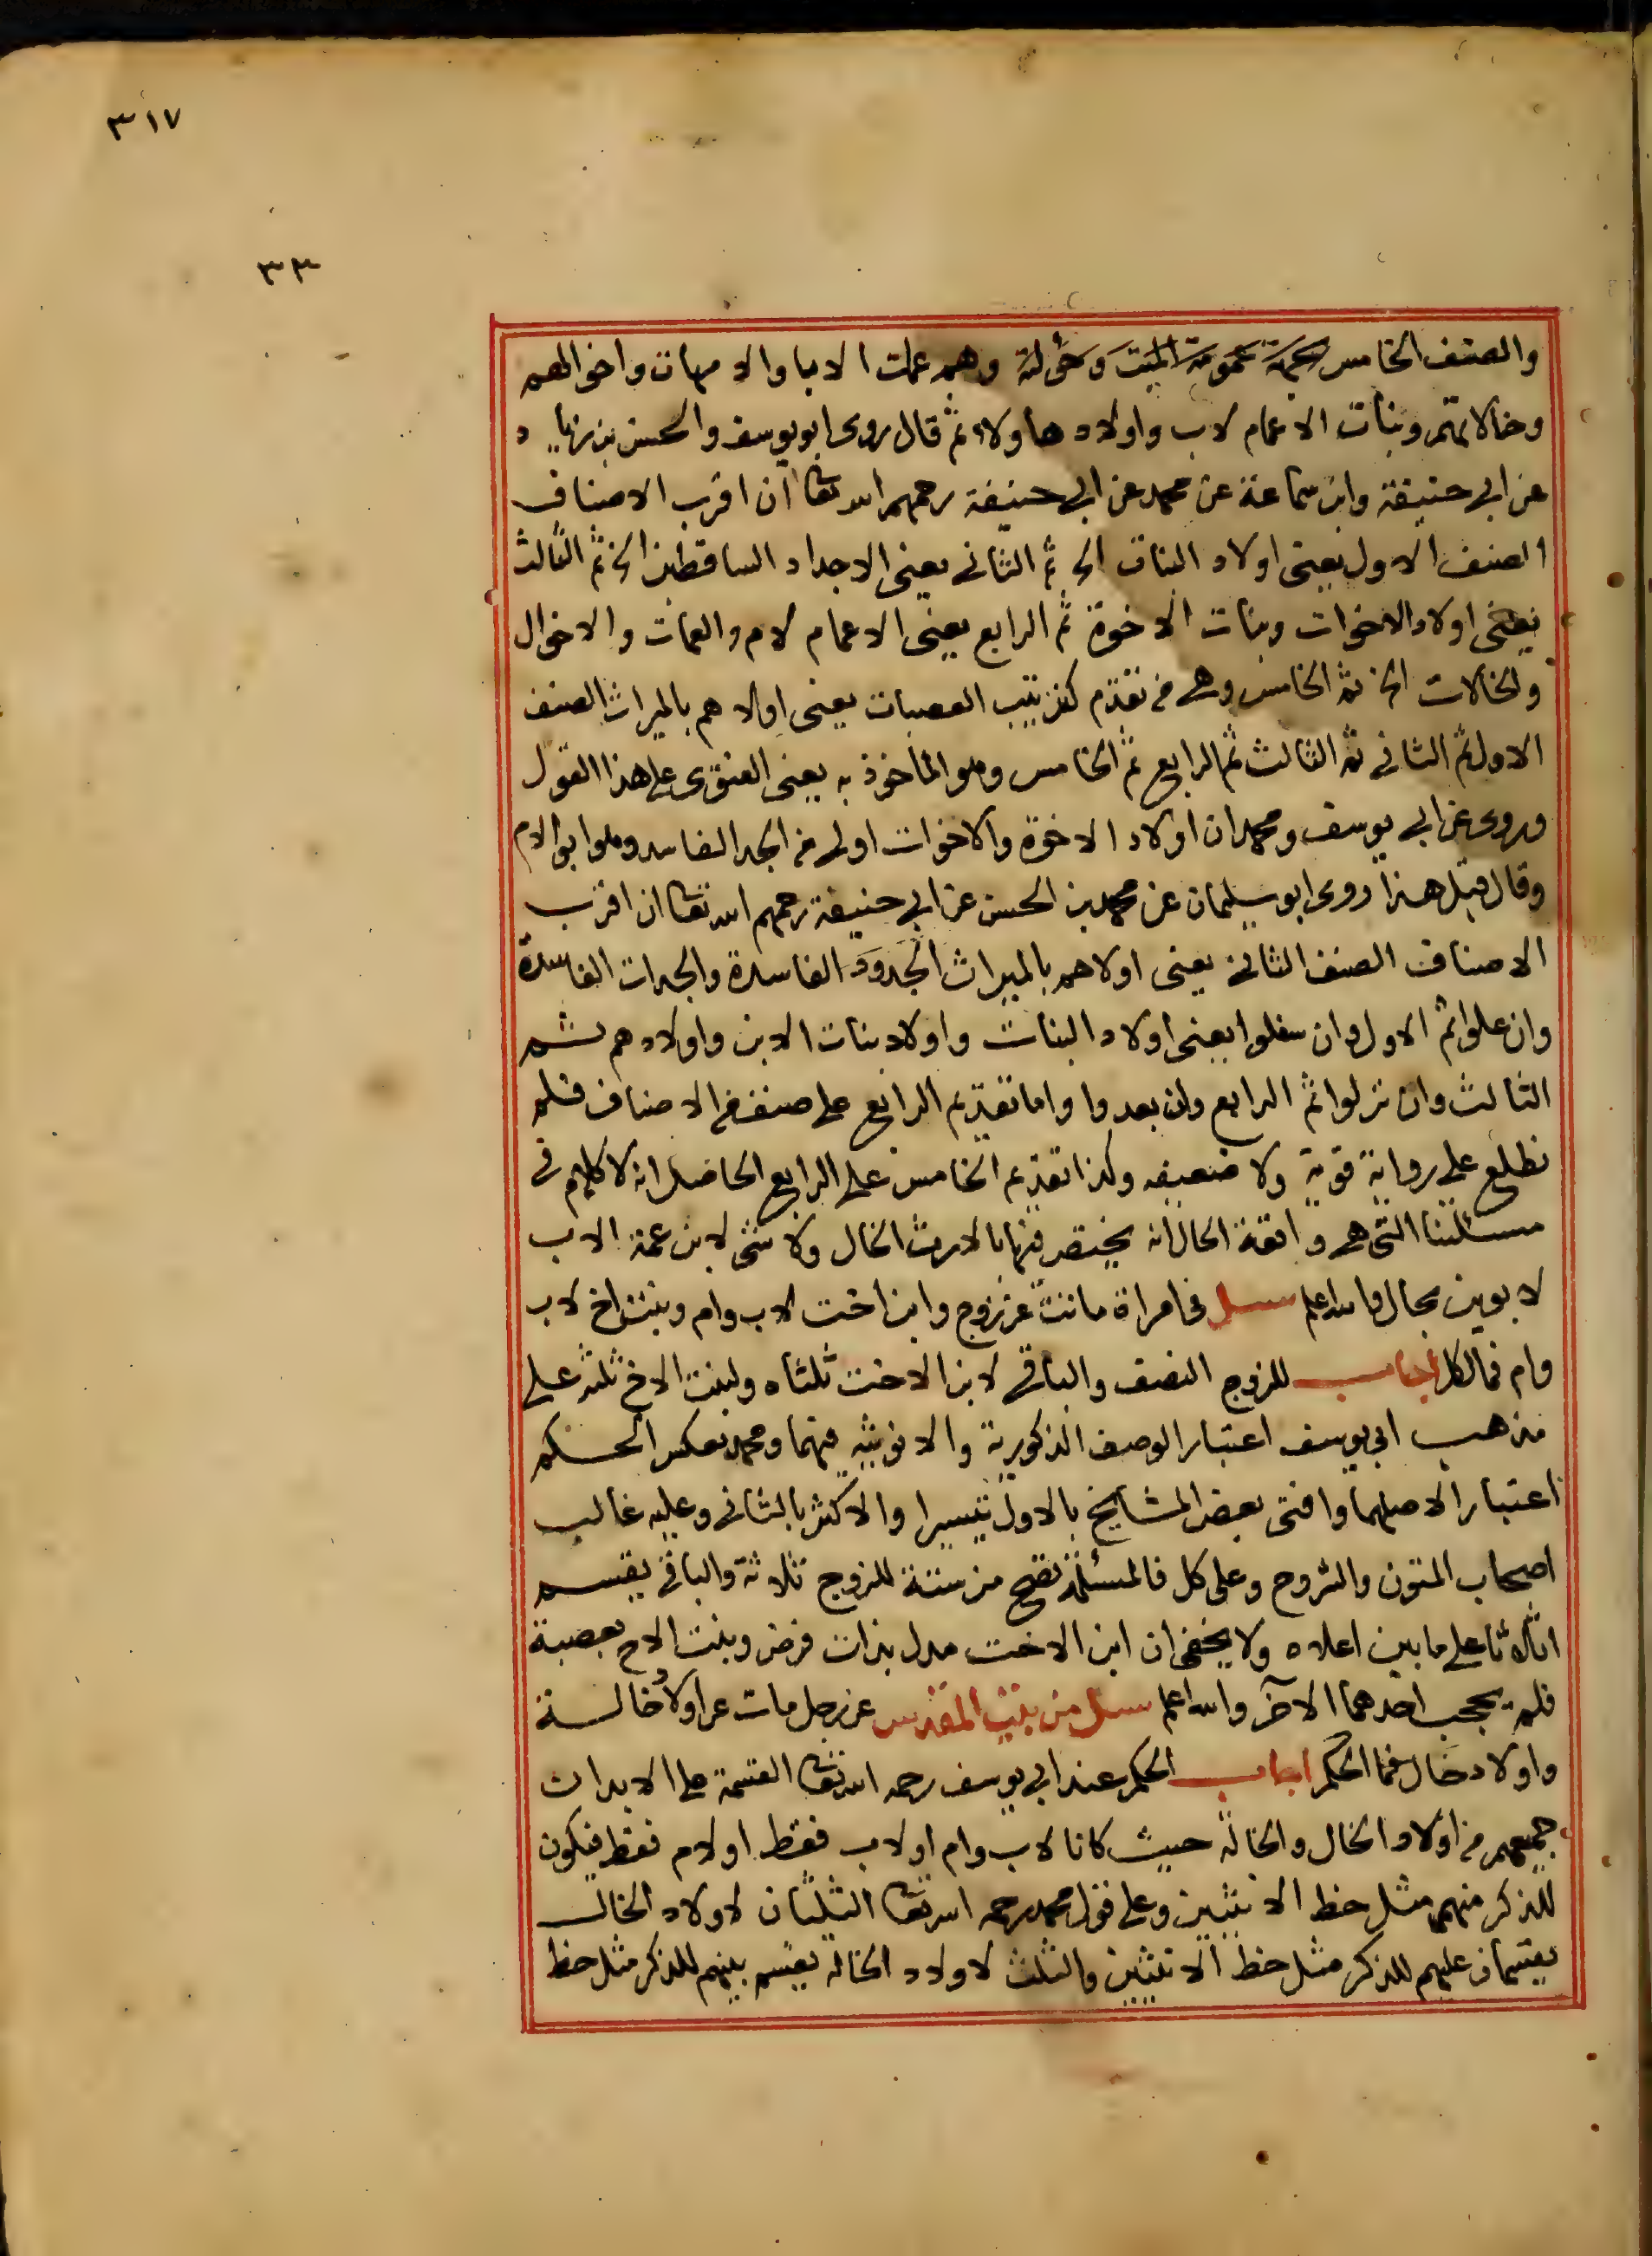 ٣١٧
٣٣
والصنف الخامس عمومة الميت وخؤلته وهم عمات الابا والامهات واخوالهم
وخالاتهم وبنات الاعمام لاب واولاد هاولاء ثم قال روى ابو يوسف والحسن بن زياد
عن ابي حنيفة وابن سماعة عن محمد عن ابي حنيفة رحمهم الله تعا ان اقرب الاصناف
الصنف الاول يعنى اولاد البنات الخ ثم الثانى يعنى الاجداد الساقطين الخ ثم الثالث
يعنى اولاد الاخوات وبنات الاخوة ثم الرابع يعنى الاعمام لام والعمات والاخوال
والخالات الخ ثم الخامس وهى من تقدم كترتيب العصبات يعنى اولاهم بالميراث الصنف
الاول ثم الثانى ثم الثالث ثم الرابع ثم الخامس وهو الماخوذ به يعنى الفتوى على هذا القول
وروى عن ابي يوسف ومحمد ان اولاد الاخوة والاخوات اولى من الجد الفاسد وهو ابو الام
وقال قبل هذا روى ابو سليمان عن محمد بن الحسن عن ابي حنيفة رحمهم الله تعا ان اقرب
الاصناف الصنف الثانى يعنى اولاهم بالميراث الجدود الفاسدة والجدات الفاسدة
وان علوا ثم الاول وان سفلوا يعنى اولاد البنات واولاد بنات الابن واولادهم ثم
الثالث وان نزلوا ثم الرابع وان بعدوا واما تقديم الرابع على صنف من الاصناف فلم
نطلع على رواية قوية ولا ضعيفه وكذا تقديم الخامس على الرابع الحاصل انه لا كلام فى
مسئلتنا التى هى واقعة الحال انه يختص فيها بالارث الخال ولا شئ لابن عمة الاب
لابوين بحال والله اعلم سئل فى امراة ماتت عن زوج وابن اخت لاب وام وبنت اخ لاب
وام فما لكل اجاب للزوج النصف والباقى لابن الاخت ثلثاه ولبنت الاخ ثلثه على
مذهب ابى يوسف اعتبار الوصف الذكورية والانوثيه فيهما ومحمد بعكس الحكم
اعتبارا لاصلهما وافتى بعض المشايخ بالاول تيسيرا والاكثر بالثانى وعليه غالب
اصحاب المتون والشروح وعلى كل فالمسئلة تصح من ستة للزوج ثلاثة والباقى يقسم
اثلاثا على ما بين اعلاه ولا يخفى ان ابن الاخت مدل بذات فرض وبنت الاخ بعصبة
فلم يحجب احدهما الآخر والله اعلم سئل من بيت المقدس عن رجل مات عن اولاد خالة
واولاد خال فما الحكم اجاب الحكم عند ابى يوسف رحمه الله تعا القسمة على الابدان
جميعهم من اولاد الخال والخالة حيث كانا لاب وام او لاب فقط او لام فقط فيكون
للذكر منهم مثل حظ الانثيين وعلى قول محمد رحمه الله تعا الثلثان لاولاد الخال
يقتسمان عليهم للذكر مثل حظ الانثيين والثلث لاولاد الخالة يقسم بينهم للذكر مثل حظ